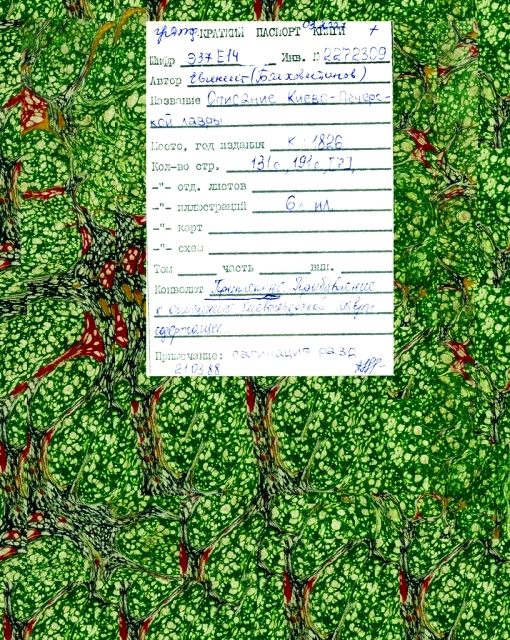 КРАТКИЙ ПАСПОРТ КНИГИ
Шифр Э37 Е14 Инв. № 2272309
Автор Евгений (Болховитинов)
Название Описание Киево-Печерс-
кой лавры
Место, год издания К., 1826
Кол-во стр. 131с., 191с., [2],
-"- отд. листов
-"- иллюстраций 6 ил.
-"- карт
-"- схем
Том часть вып.
Конволют Приплетено: Прибавление
к описанию Киевопечерской лавры
содержащее
Примечание: пагинация разд.
21.03.88